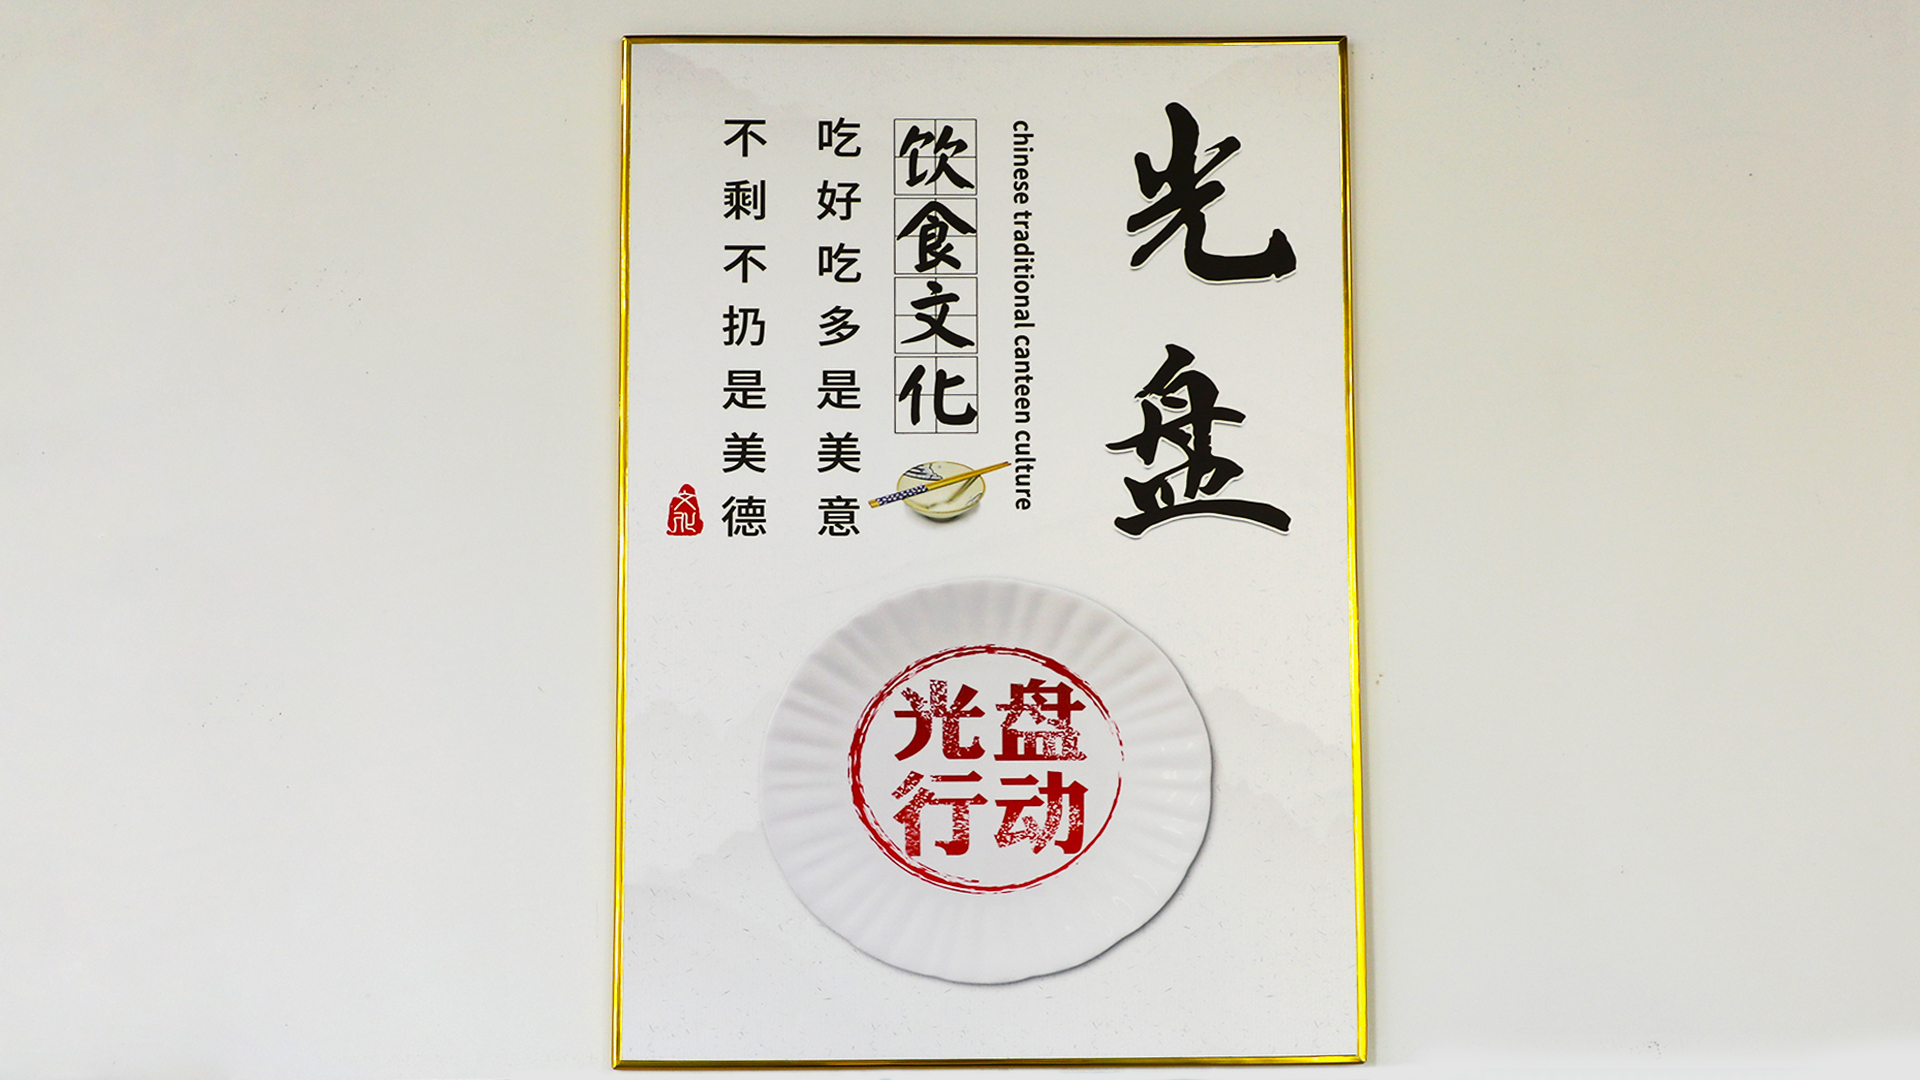 光盘
chinese traditional canteen culture
饮食文化
吃好吃多是美意
不剩不扔是美德
文化
光盘
行动